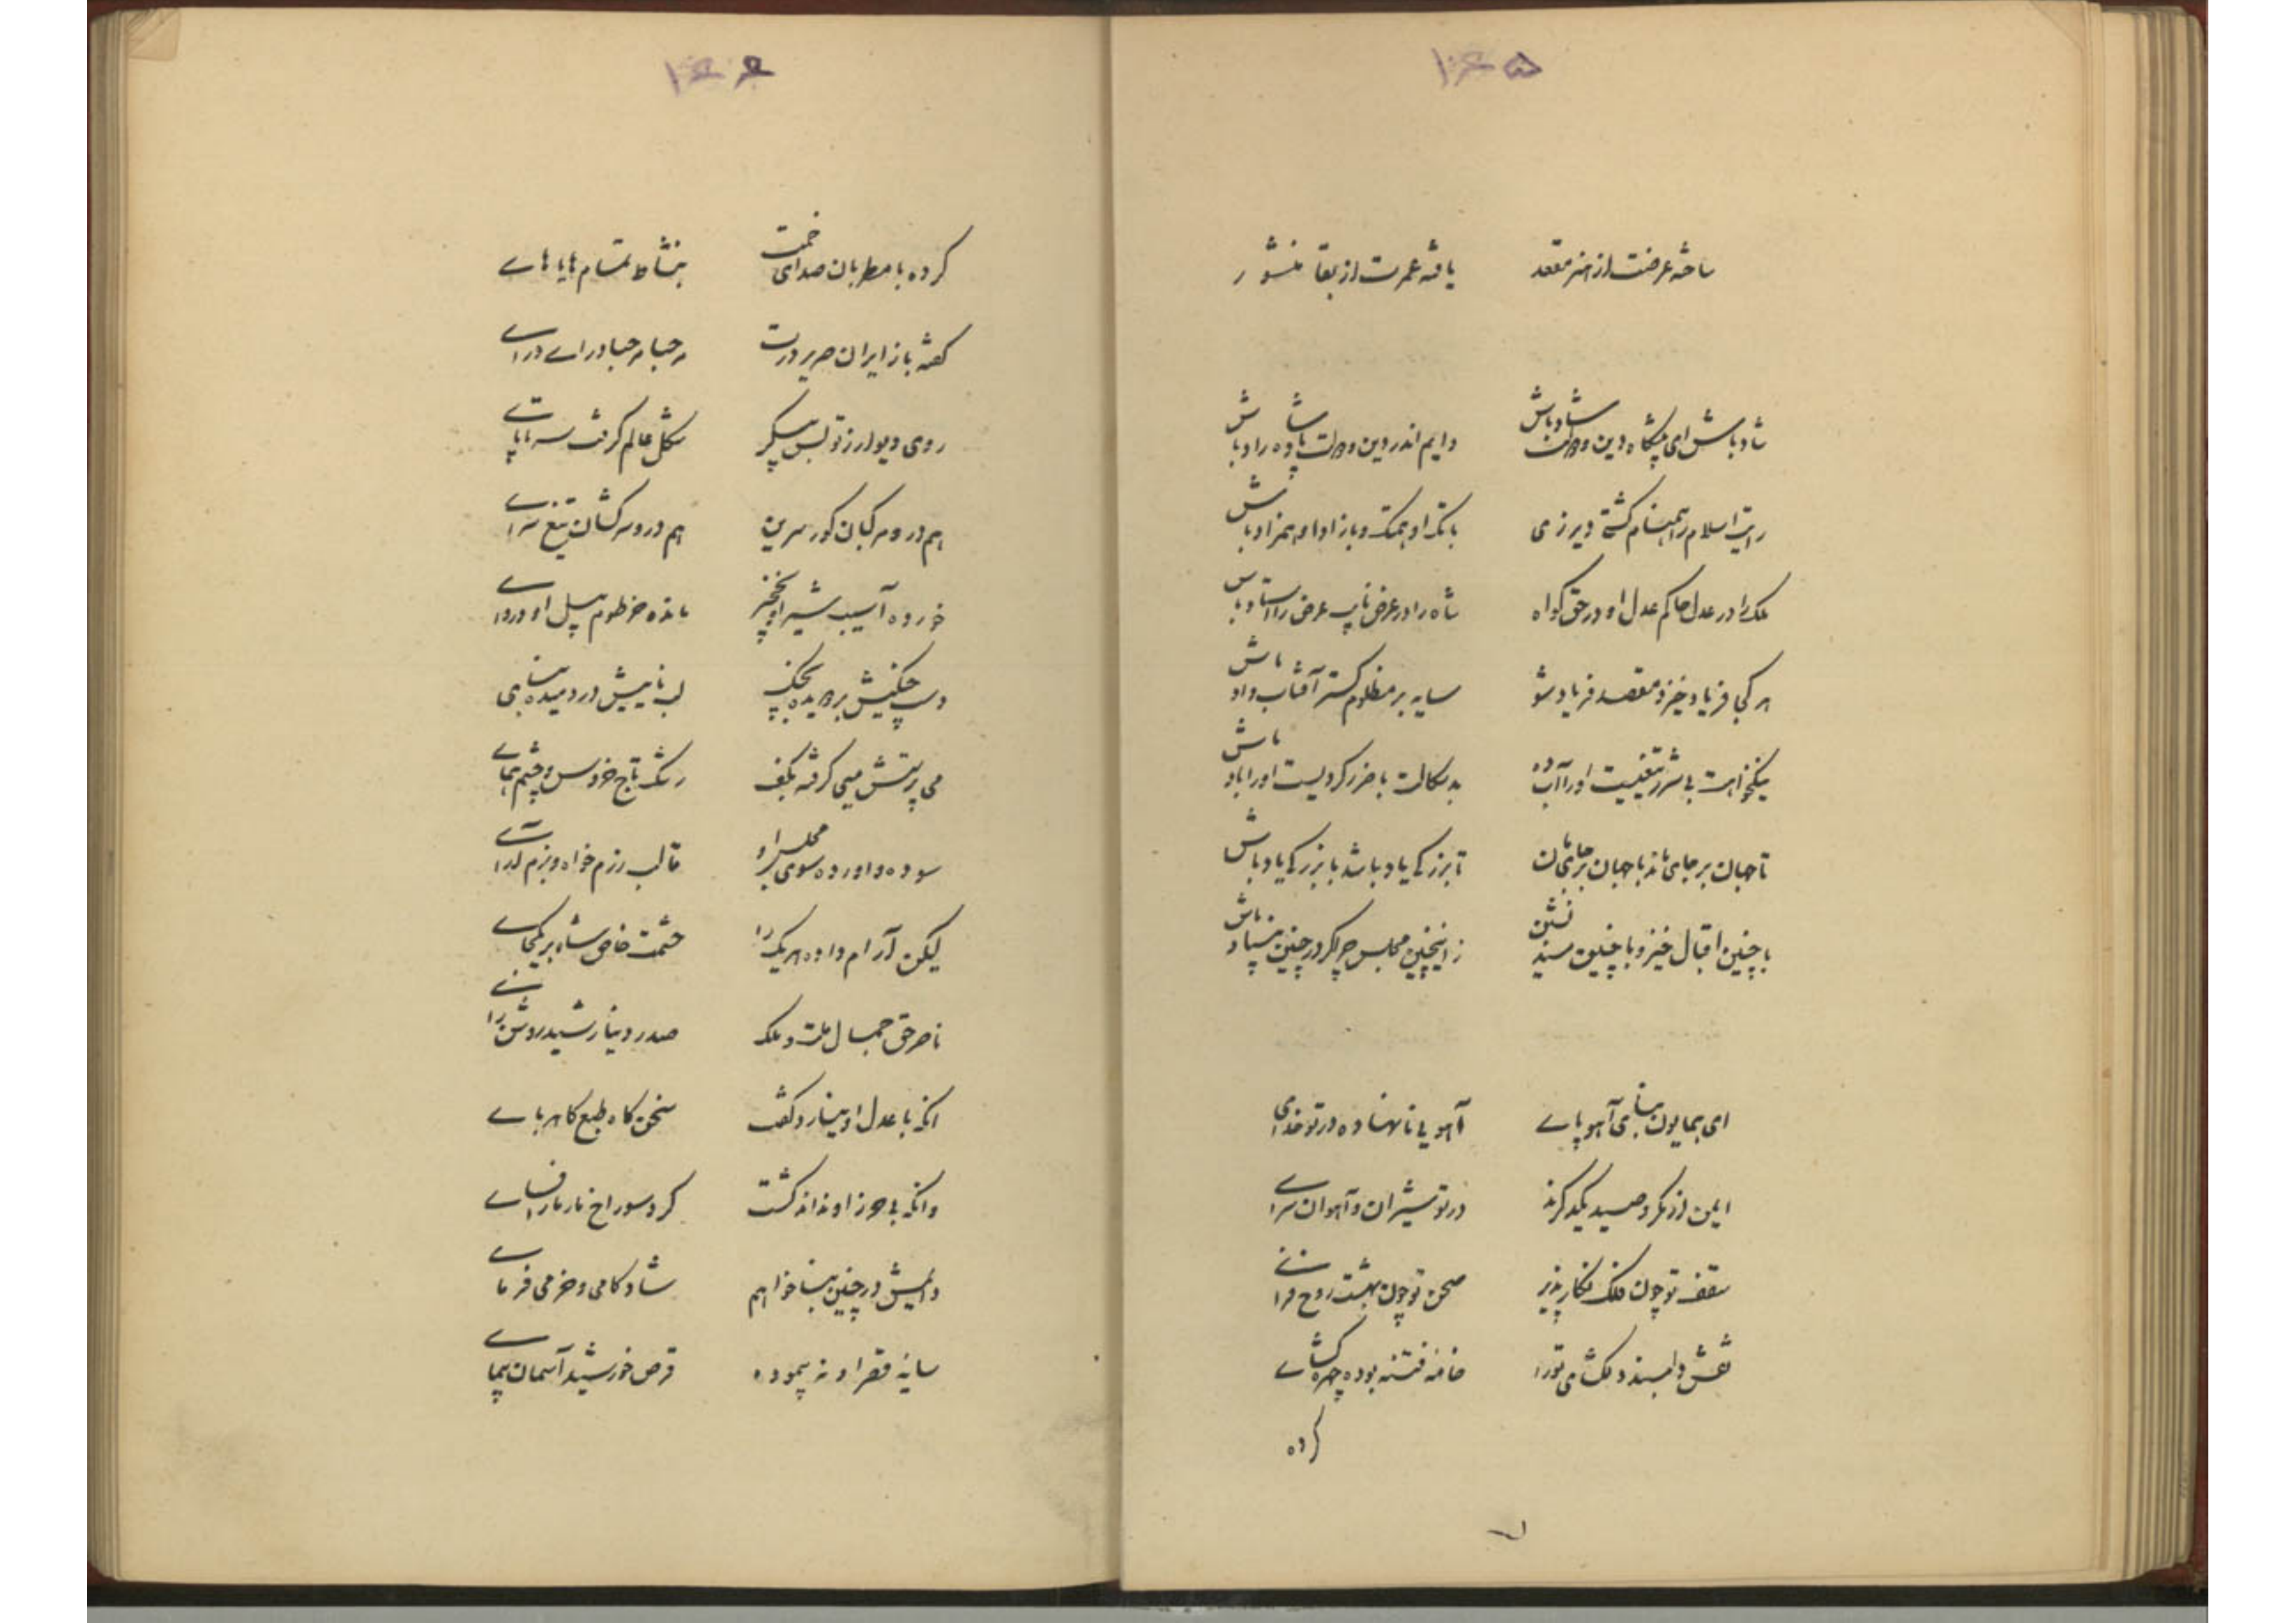 ۱۶۵
ساخته عرضت از هنر مقعد یافته عمرت از بقا منشور
شاد باش ای پیشگاه دین و دولت شاد باش دایم اندر دین و دولت با وه راد باش
رایت اسلام را همنام گشتی دیر زی بانک او همتک و باز او او همزاد باش
ملک را در عدل حاکم عدل او در حق گواه شاه را در عرض نایب عرض را استاد باش
هر کجا فریاد خیزد مقصد فریاد شو سایه بر مظلوم گستر آفتاب داد باش
نیکخواهت بی شرر تفتیست او را آب ده بد سگالت با ضرر گردیست او را باد باش
تا جهان بر جای ماند با جهان بر جای مان تا بزرگی یاد باشد با بزرگی یاد باش
با چنین اقبال خیز و با چنین سید نشین زاینچنین مجلس چراکر در چنین بنیاد باش
ای همایون بنای آهو پای آهویی نانهاده در تو خدای
ایمن از مکر و صید یکدگرند در تو شیران و آهوان سرای
سقف تو چون فلک نگار پذیر صحن تو چون بهشت روح فزای
نقش دلبند و دلکشای تورا خامه فتنه بوده چهره گشای
کرده
۱۶۶
کرده با مطربان صدای خمت بنشاط تمام هایاهای
گفته باز ایران صریر درت مرحبا مرحبا درای درای
روی دیوارز تو بس پیکر شکل عالم گرفت سر تا پای
هم در و مرکبان گور سرین هم در و سرکشان تیغ سرای
خورده آسیب شیر او نخجیر مانده خرطوم پیل او دروای
دست چنگیش بر دریده بچنگ لب نائیش در دمیده بنای
می پرستش میی گرفته بکف رشک تاج خروس و چشم همای
سوده و اورده سوی مجلس او قالب رزم خواه و بزم آرای
لیکن آرام داده هر یک را حشمت خاص شاه بر یکجای
ناصر حق جمال ملت و ملک صدر دنیا رشید روشن رای
انکه با عدل او نیارد گفت سخن کاه طبع کاه ربای
وانکه بی حرز او نداند گشت گرد سوراخ مار مار افسای
دایمش در چنین بنا خواهم شادکامی و خرمی فرمای
سایه قصر او نه پیموده قرص خورشید آسمان پیمای